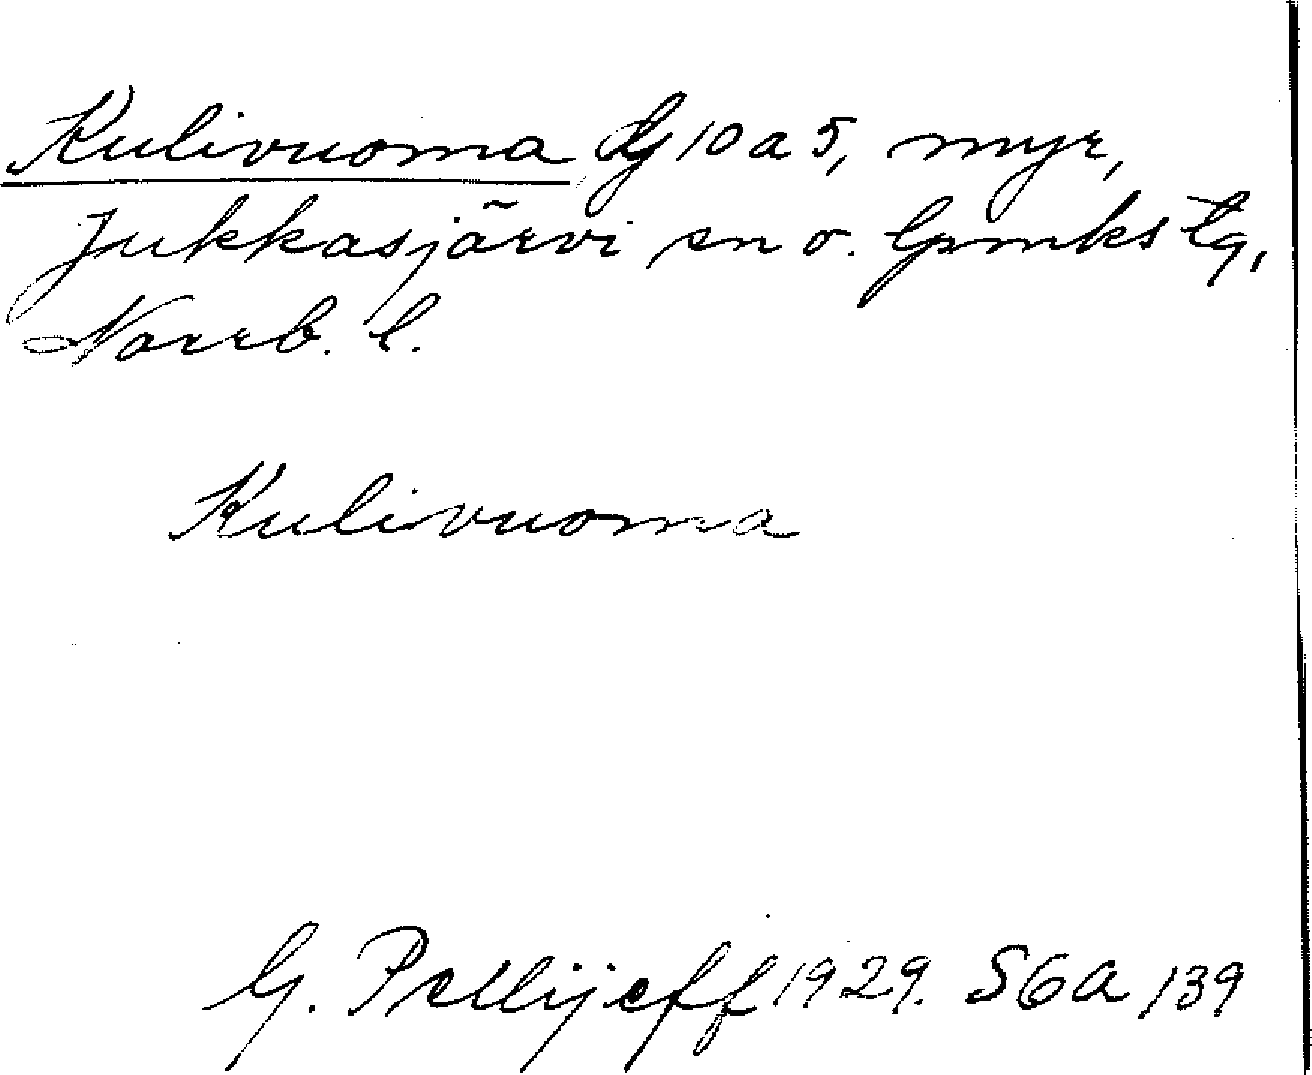 Kulivuoma dG10a5, myr,
Jukkasjärvi sn o. lpmks tg,
Norrb. l.
Kulivuoma
G. Pellijeff 1929. SGA 139